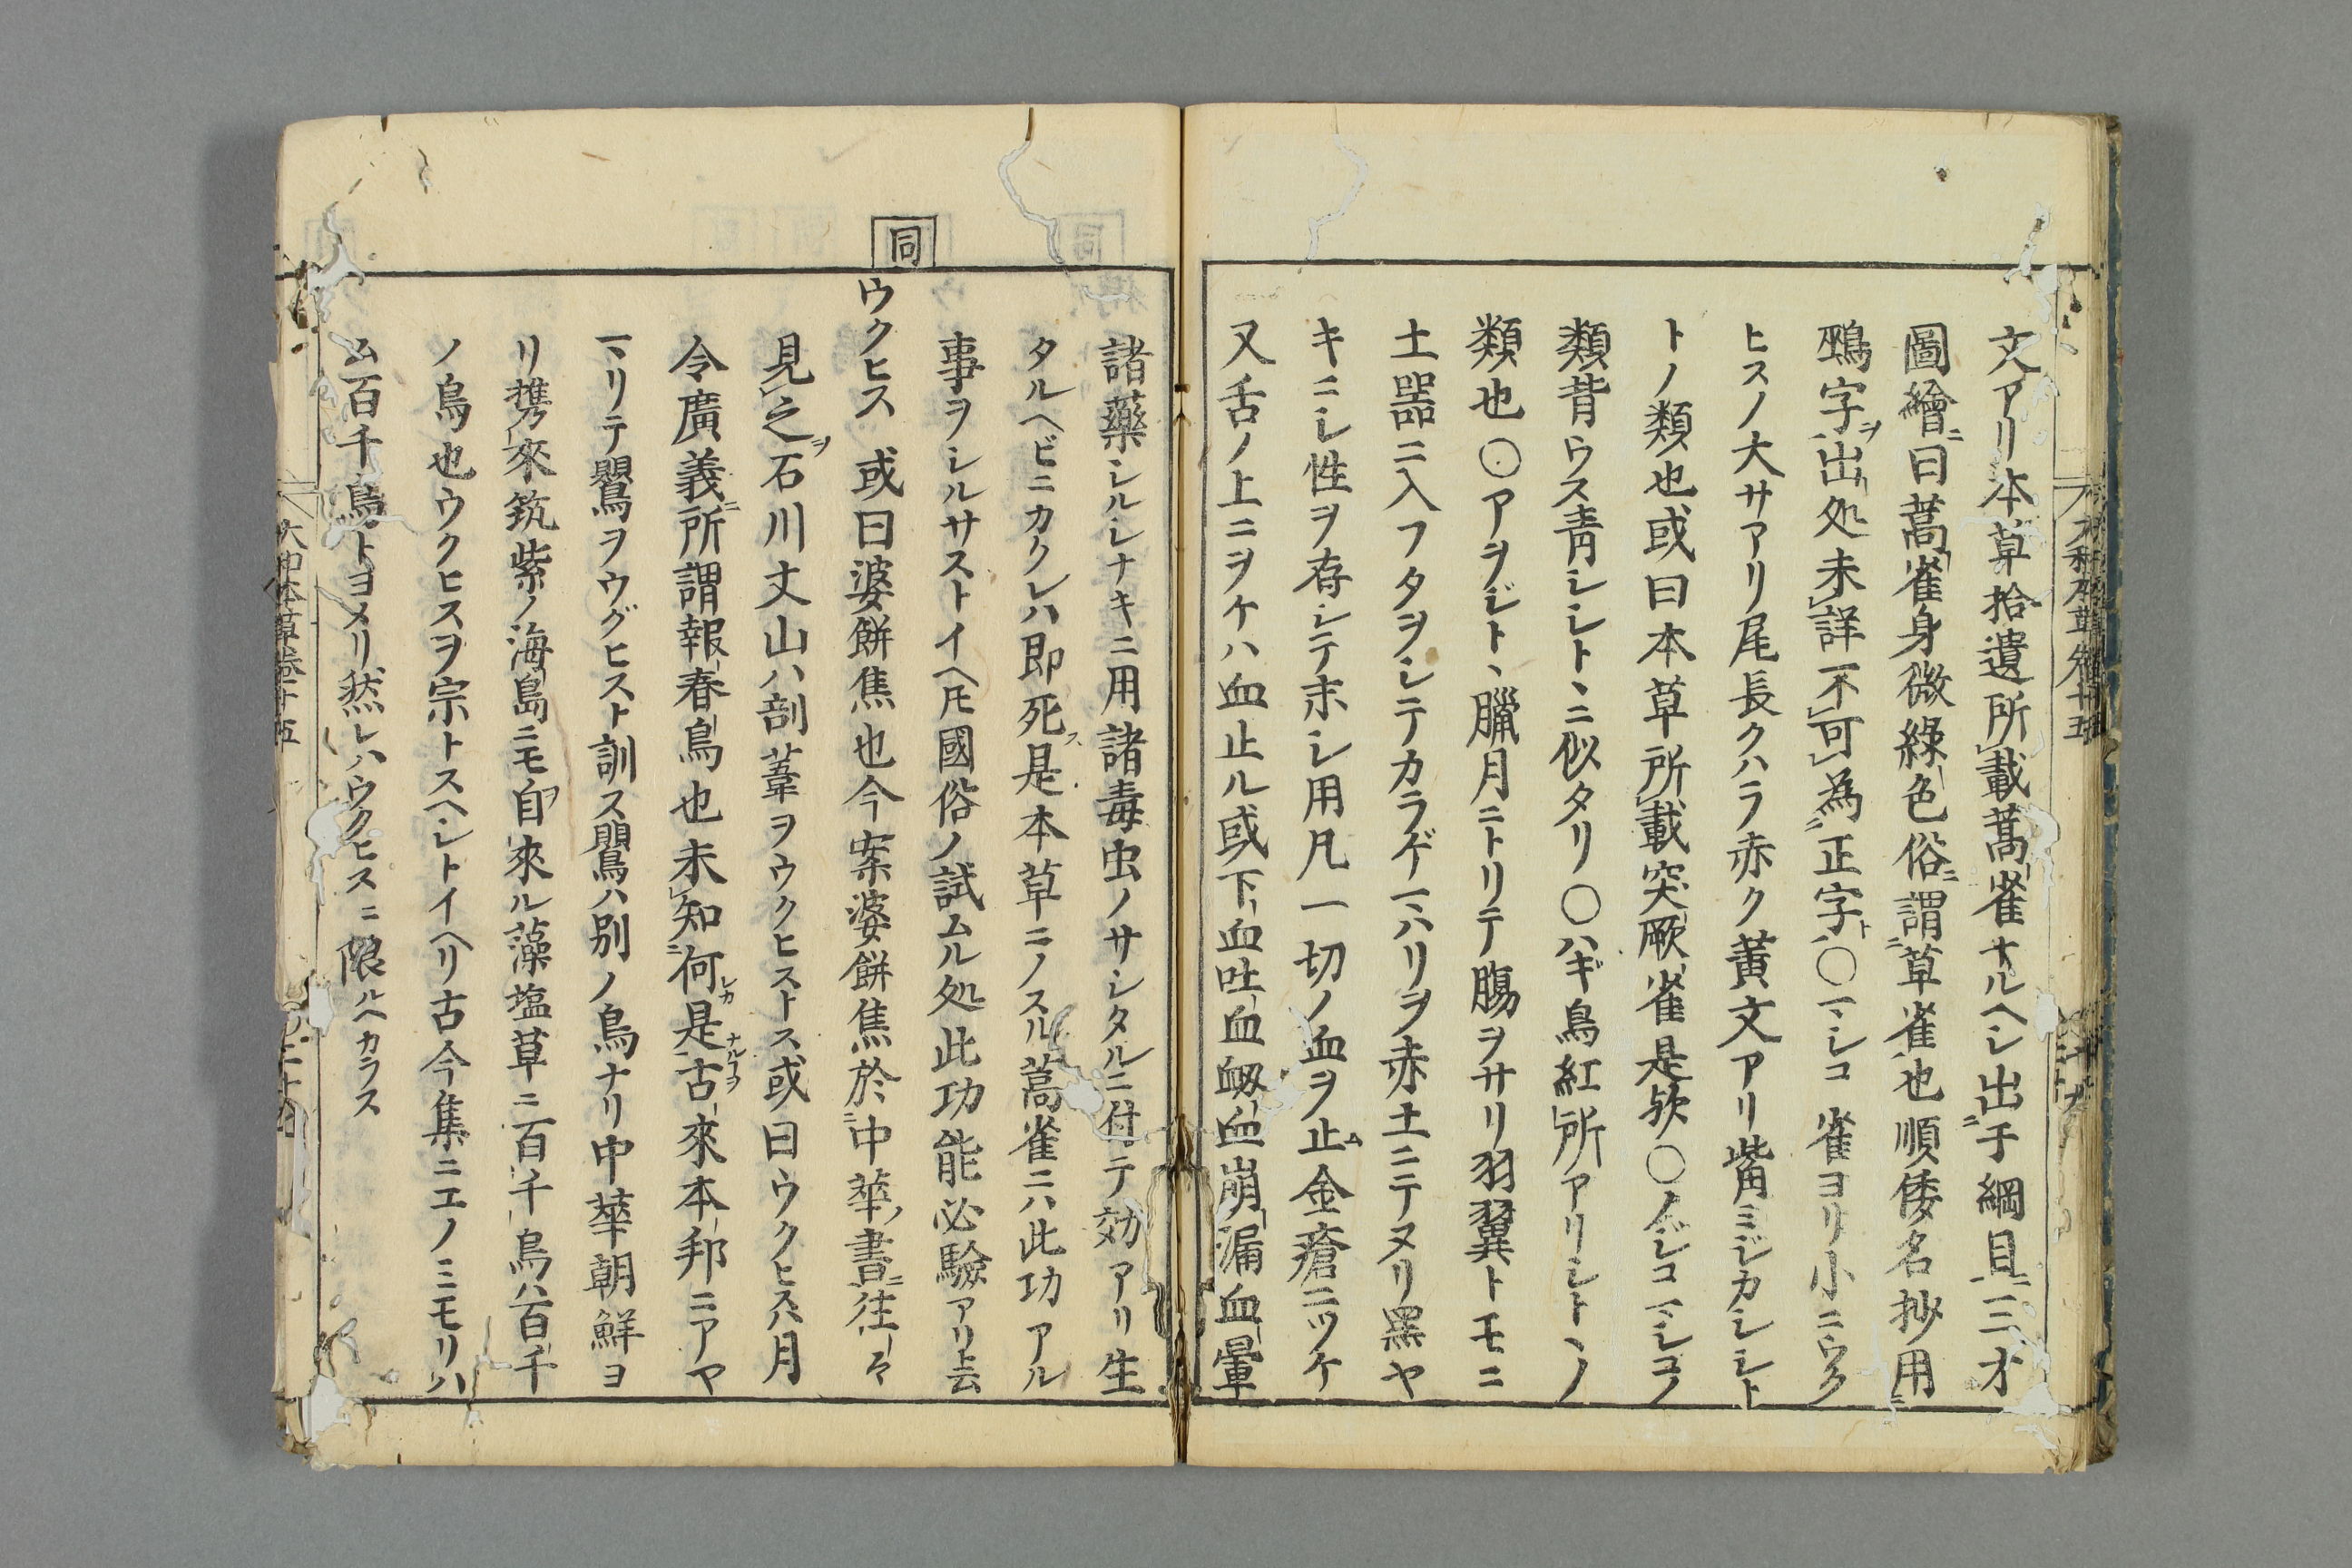 文アリ本草拾遺所載蒿雀ナルヘシ出于綱目三才
圖繪ニ曰蒿雀身微緑色俗ニ謂草雀也順倭名抄用
鵐字ヲ出処未詳不可為正字ト○マシコ 雀ヨリ小ニウク
ヒスノ大サアリ尾長クハラ赤ク黄文アリ觜ミジカシシト
トノ類也或曰本草所載突厥雀是欤○ノジコマシコノ
類背ウス青シシトヽニ似タリ○ハギ鳥紅所アリシトヽノ
類也○アヲジトヽ臘月ニトリテ腸ヲサリ羽翼トモニ
土器ニ入フタヲシテカラゲマハリヲ赤土ニテヌリ黒ヤ
キニシ性ヲ存シテ末シ用凡一切ノ血ヲ止ム金瘡ニツケ
又舌ノ上ニヲケハ血止ル或下血吐血衂血崩漏血暈
諸藥シルシナキニ用諸毒虫ノサシタルニ付テ効アリ生
タルヘビニカクレハ即死ス是本草ニノスル蒿雀ニハ此功アル
事ヲシルサストイヘ𪜈國俗ノ試ムル処此功能必驗アリト云
同
ウクヒス 或曰婆餅焦也今案婆餅焦於中華ノ書ニ往々
見之ヲ石川丈山ハ剖葦ヲウクヒストス或曰ウクヒスハ月
令廣義ニ所謂報春鳥也未知何レカ是ナルヿヲ古來本邦ニアヤ
マリテ鸎ヲウグヒスト訓ス鸎ハ別ノ鳥ナリ中華朝鮮ヨ
リ携來筑紫ノ海島ニモ自ラ來ル藻塩草ニ百千鳥ハ百千
ノ鳥也ウクヒスヲ宗トスヘシトイヘリ古今集ニエノミモリハ
ム百千鳥トヨメリ然レハウクヒスニ限ルヘカラス
大和本草卷十五